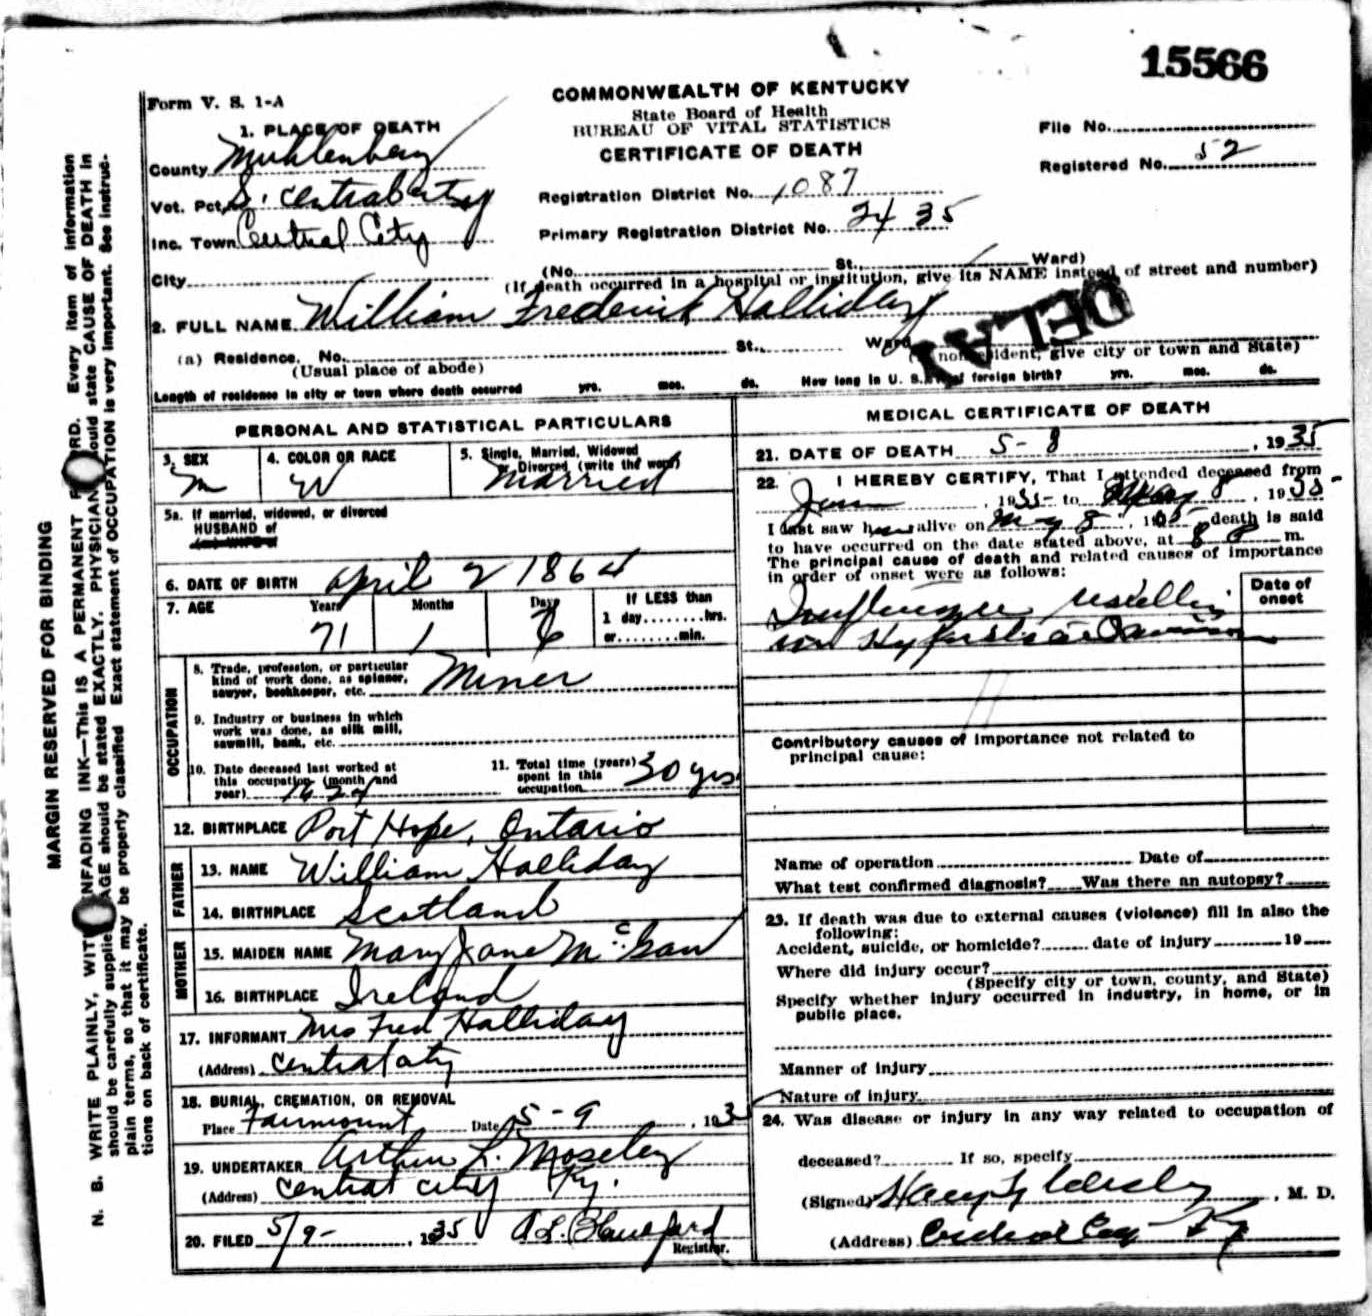 15566
Form V. S. 1-A
COMMONWEALTH OF KENTUCKY
State Board of Health
BUREAU OF VITAL STATISTICS
CERTIFICATE OF DEATH
File No.
Registered No. 52
1. PLACE OF DEATH
County Muhlenberg
Vot. Pct. S. Central City
Inc. Town Central City
City
Registration District No. 1087
Primary Registration District No. 2435
(No. St. Ward)
(If death occurred in a hospital or institution, give its NAME instead of street and number)
2. FULL NAME William Frederick Halliday
DELAY
(a) Residence. No. St. Ward
(Usual place of abode) (If nonresident, give city or town and State)
Length of residence in city or town where death occurred yrs. mos. ds. How long in U. S. if of foreign birth? yrs. mos. ds.
PERSONAL AND STATISTICAL PARTICULARS
3. SEX M
4. COLOR OR RACE W
5. Single, Married, Widowed or Divorced (write the word) Married
5a. If married, widowed, or divorced
HUSBAND of
(or) WIFE of
6. DATE OF BIRTH April 2 1864
7. AGE Years 71 Months 1 Days 6 If LESS than 1 day hrs. or min.
OCCUPATION
8. Trade, profession, or particular
kind of work done, as spinner,
sawyer, bookkeeper, etc. Miner
9. Industry or business in which
work was done, as silk mill,
sawmill, bank, etc.
10. Date deceased last worked at
this occupation (month and
year) 1924
11. Total time (years)
spent in this
occupation 30 yrs
12. BIRTHPLACE Port Hope, Ontario
FATHER
13. NAME William Halliday
14. BIRTHPLACE Scotland
MOTHER
15. MAIDEN NAME Mary Jane McGaw
16. BIRTHPLACE Ireland
17. INFORMANT Mrs Fred Halliday
(Address) Central City
18. BURIAL, CREMATION, OR REMOVAL
Place Fairmount Date 5-9, 193
19. UNDERTAKER Arthur L. Moseley
(Address) Central City Ky.
20. FILED 5/9-, 1935
Registrar.
MEDICAL CERTIFICATE OF DEATH
21. DATE OF DEATH 5-8, 1935
22. I HEREBY CERTIFY, That I attended deceased from
, 1935 to May 8, 1935
I last saw him alive on May 8, 1935 death is said
to have occurred on the date stated above, at 8 P m.
The principal cause of death and related causes of importance
in order of onset were as follows:
Date of
onset
Contributory causes of importance not related to
principal cause:
Name of operation Date of
What test confirmed diagnosis? Was there an autopsy?
23. If death was due to external causes (violence) fill in also the
following:
Accident, suicide, or homicide? date of injury 19
Where did injury occur?
(Specify city or town, county, and State)
Specify whether injury occurred in industry, in home, or in
public place.
Manner of injury
Nature of injury
24. Was disease or injury in any way related to occupation of
deceased? If so, specify
(Signed) , M. D.
(Address) Central City Ky
MARGIN RESERVED FOR BINDING
N. B. WRITE PLAINLY, WITH UNFADING INK—THIS IS A PERMANENT RECORD. Every item of information
should be carefully supplied. AGE should be stated EXACTLY. PHYSICIANS should state CAUSE OF DEATH in
plain terms, so that it may be properly classified. Exact statement of OCCUPATION is very important. See instruc-
tions on back of certificate.